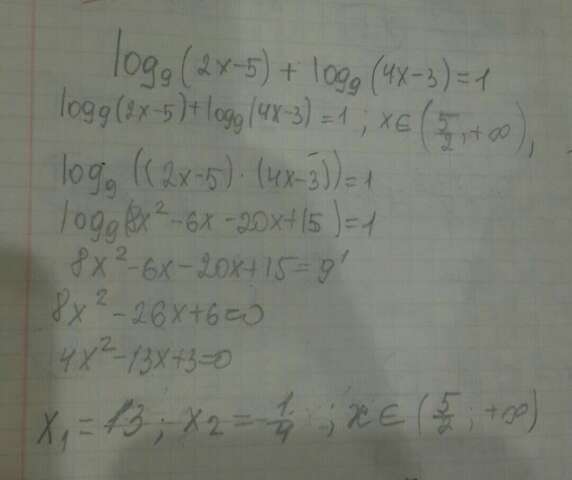 log₉(2x-5)+log₉(4x-3)=1
log₉(2x-5)+log₉(4x-3)=1; x∈(5/2;+∞),
log₉((2x-5)·(4x-3))=1
log₉(8x²-6x-20x+15)=1
8x²-6x-20x+15=9¹
8x²-26x+6=0
4x²-13x+3=0
x₁=13; x₂=1/4; x∈(5/2;+∞)